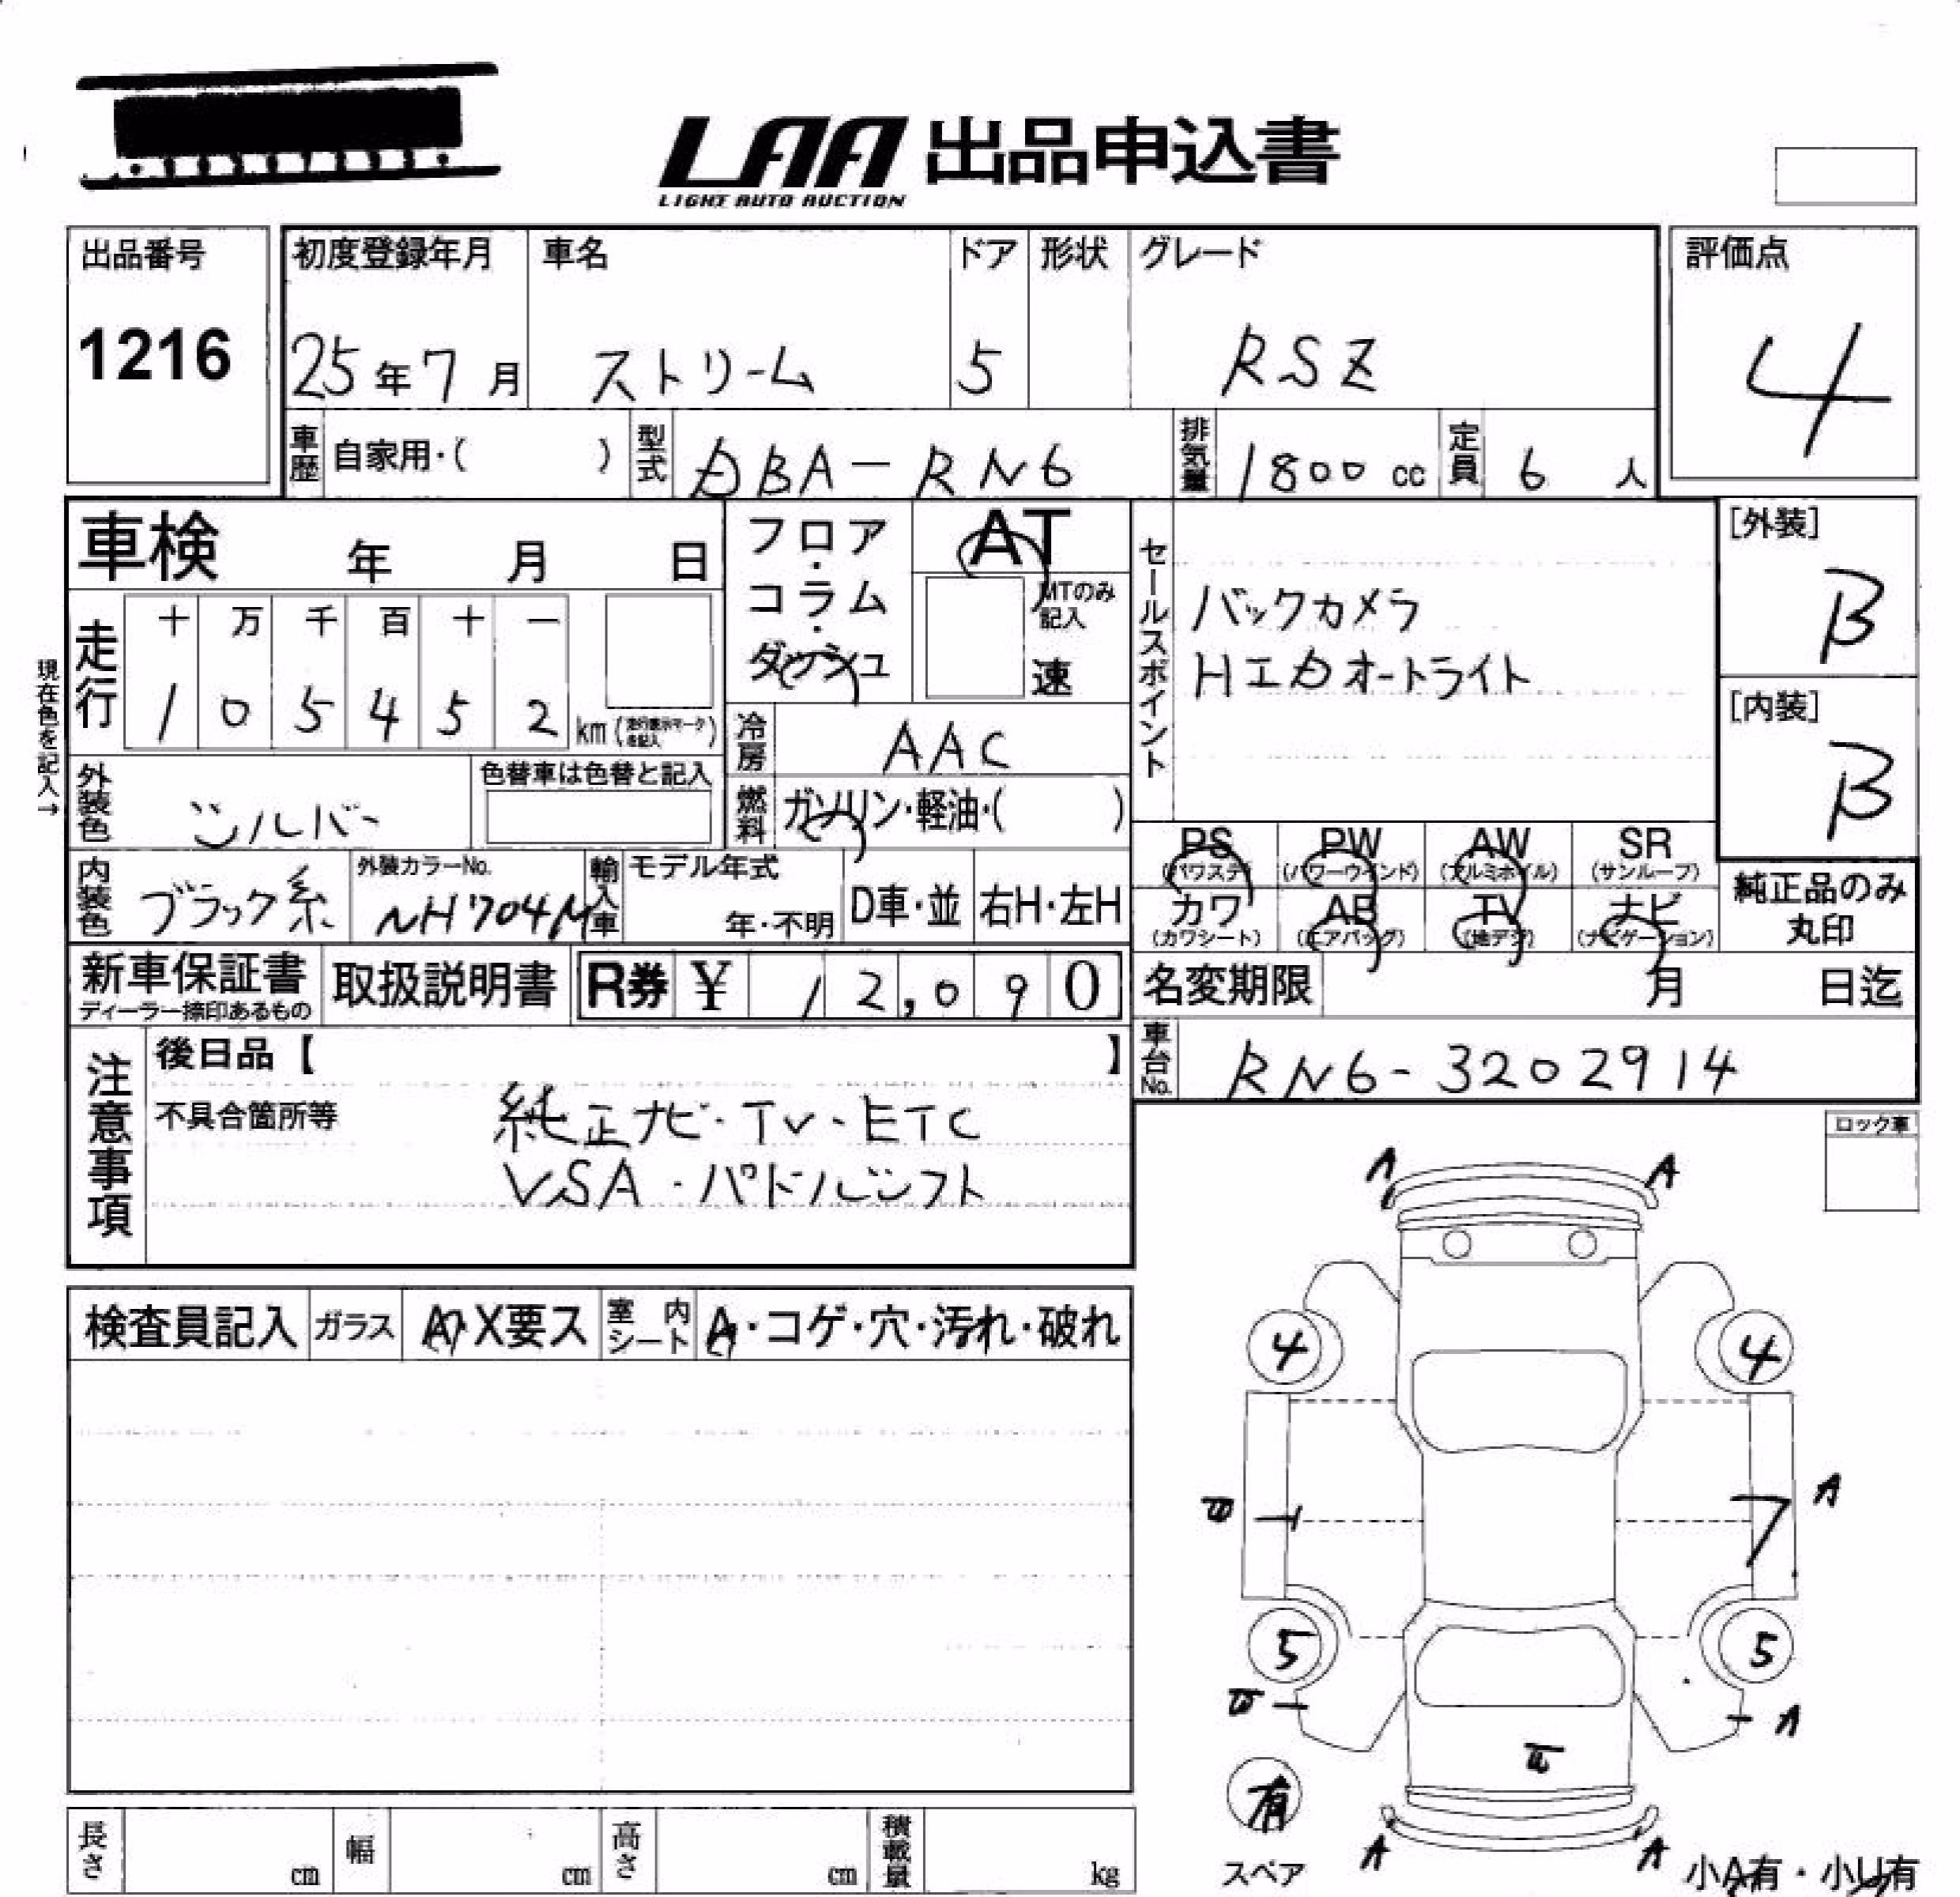 LAA 出品申込書
LIGHT AUTO AUCTION
出品番号
1216
初度登録年月
25年7月
車名
ストリーム
ドア
5
形状
グレード
RSZ
評価点
4
車歴 自家用・( )
型式 DBA-RN6
排気量 1800 cc
定員 6 人
車検 年 月 日
フロア・コラム・ダッシュ
AT
MTのみ記入
速
セールスポイント
バックカメラ
HIDオートライト
[外装]
B
[内装]
B
現在色を記入→
走行
十 万 千 百 十 一
1 0 5 4 5 2 km
冷房 AAC
外装色 シルバー
色替車は色替と記入
燃料 ガソリン・軽油・( )
PS AW PW SR
(パワステ) (パワーウインド) (アルミホイル) (サンルーフ)
カワ AB TV ナビ
(カワシート) (エアバッグ) (地デジ) (ナビゲーション)
純正品のみ
丸印
内装色 ブラック系
外装カラーNo.
NH704M
輸入車
モデル年式
年・不明
D車・並
右H・左H
新車保証書
ディーラー捺印あるもの
取扱説明書
R券 ¥ 12,090
名変期限 月 日迄
車台No. RN6-3202914
注意事項
後日品【 】
不具合箇所等
純正ナビ・TV・ETC
VSA・パドルシフト
ロック車
A A
検査員記入 ガラス A・X要ス 室内シート A・コゲ・穴・汚れ・破れ
4 4
A
5 5
A
有
スペア
A A
小A有・小U有
長さ cm 幅 cm 高さ cm 積載量 kg